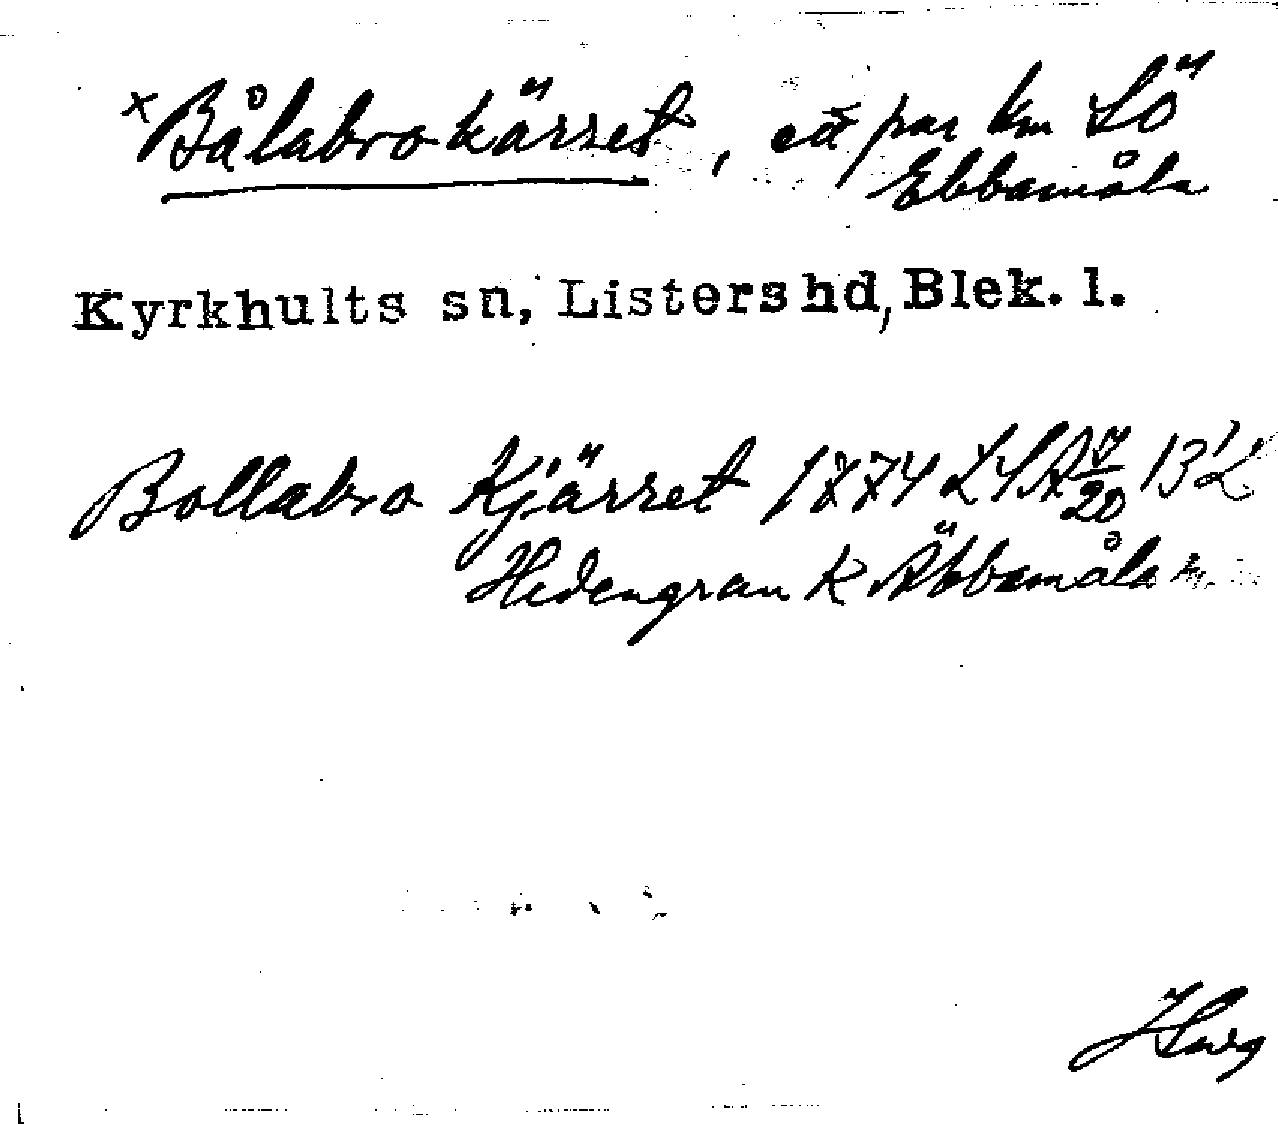 x Bålabrokärret, ett par km SÖ
Ebbamåla
Kyrkhults sn, Listers hd, Blek. l.
Bollabro Kjärret 1874 LSA 7/20 13'L
Hedengran K Äbbamåla